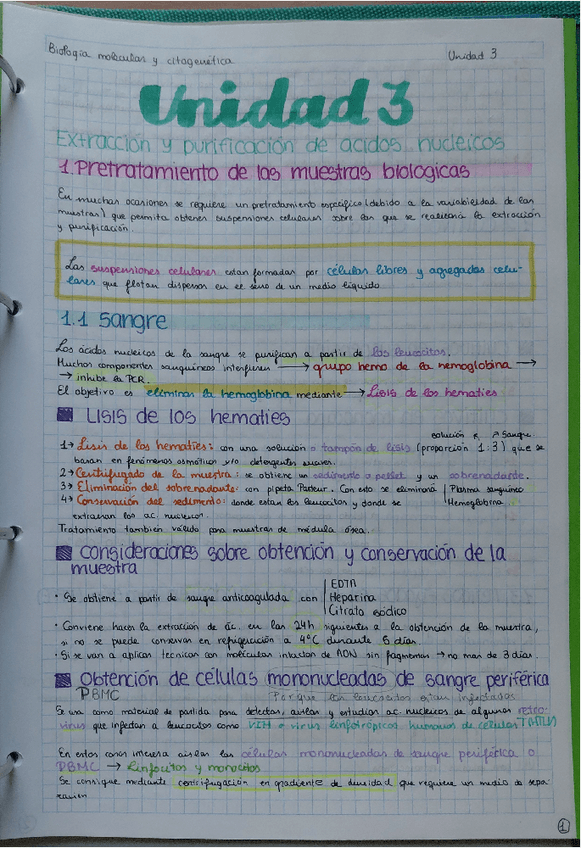 Biología molecular y citogenética
Unidad 3
Unidad 3
Extracción y purificación de acidos nucleicos
1. Pretratamiento de las muestras biologicas
En muchas ocasiones se requiere un pretratamiento específico (debido a la variabilidad de las
muestras) que permita obtener suspensiones celulares sobre las que se realizará la extracción
y purificación.
Las suspensiones celulares estan formadas por células libres y agregados celu-
lares que flotan dispersos en el seno de un medio líquido
1.1 Sangre
Los ácidos nucleicos de la sangre se purifican a partir de los leucocitos.
Muchos componentes sanguineos interfieren → grupo hemo de la hemoglobina →
→ inhibe la PCR.
El objetivo es eliminar la hemoglobina mediante → Lisis de los hematies
Lisis de los hematies
solución ↖ ↗ Sangre
1→ Lisis de los hematies: con una solución o tampón de lisis (proporción 1:3) que se
basan en fenómenos osmóticos y/o detergentes suaves.
2→ Centrifugado de la muestra: se obtiene un sedimento o pellet y un sobrenadante.
3→ Eliminación del sobrenadante: con pipeta Pasteur. Con esto se eliminará | Plasma sanguineo
4→ Conservación del sedimento: donde estan los leucocitos y donde se | Hemoglobina
extraeran los ac. nucleicos.
Tratamiento también valido para muestras de médula ósea.
Consideraciones sobre obtención y conservación de la
muestra
EDTA
· Se obtiene a partir de sangre anticoagulada con | Heparina
Citrato sódico
· Conviene hacer la extracción de ác. en las 24h siguientes a la obtención de la muestra,
si no se puede conservar en refrigeración a 4ºC durante 5 dias
· Si se van a aplicar tecnicas con moléculas intactas de ADN sin fragmentar → no mas de 3 dias.
Obtención de células mononucleadas de sangre periférica
PBMC
Porque los leucocitos estan infectados
Se usa como material de partida para detectar, aislar y estudiar ac. nucleicos de algunos retro-
virus que infectan a leucocitos como VIH o virus linfotrópicos humanos de células T (HTLV)
En estos casos interesa aislar las células mononucleadas de sangre periférica o
PBMC → Linfocitos y monocitos
Se consigue mediante centrifugación en gradiente de densidad que requiere un medio de sepa-
ración
1